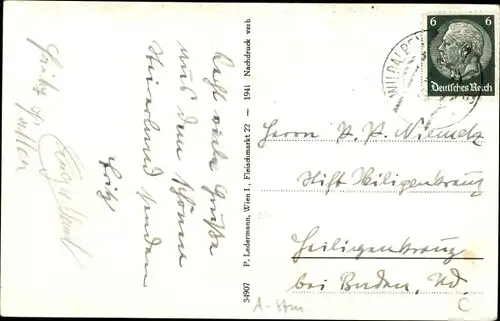 Recht viele Grüße
aus dem schönen
Steierland senden
Fritz
34907 P. Ledermann, Wien I., Fleischmarkt 22 — 1941 Nachdruck verb
WILDALPEN
6 6
Deutsches Reich
Herrn P. P. Niemetz
Stift Heiligenkreuz
Heiligenkreuz
bei Baden, Nd.
A-Stm
C